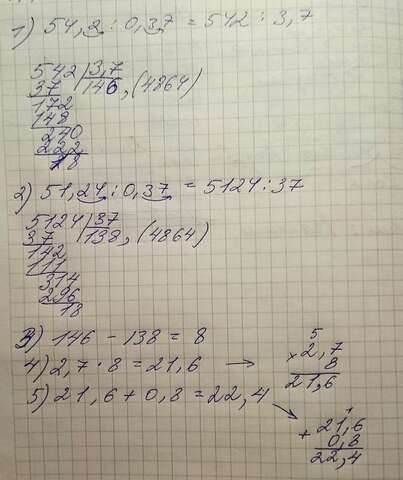 1) 54,2 : 0,37 = 542 : 3,7
542 | 3,7
37 146,(4864)
172
148
240
222
18
2) 51,24 : 0,37 = 5124 : 37
5124 | 37
37 138,(4864)
142
111
314
296
18
3) 146 - 138 = 8
4) 2,7 · 8 = 21,6 →
5
× 2,7
8
21,6
5) 21,6 + 0,8 = 22,4
1
+ 21,6
0,8
22,4